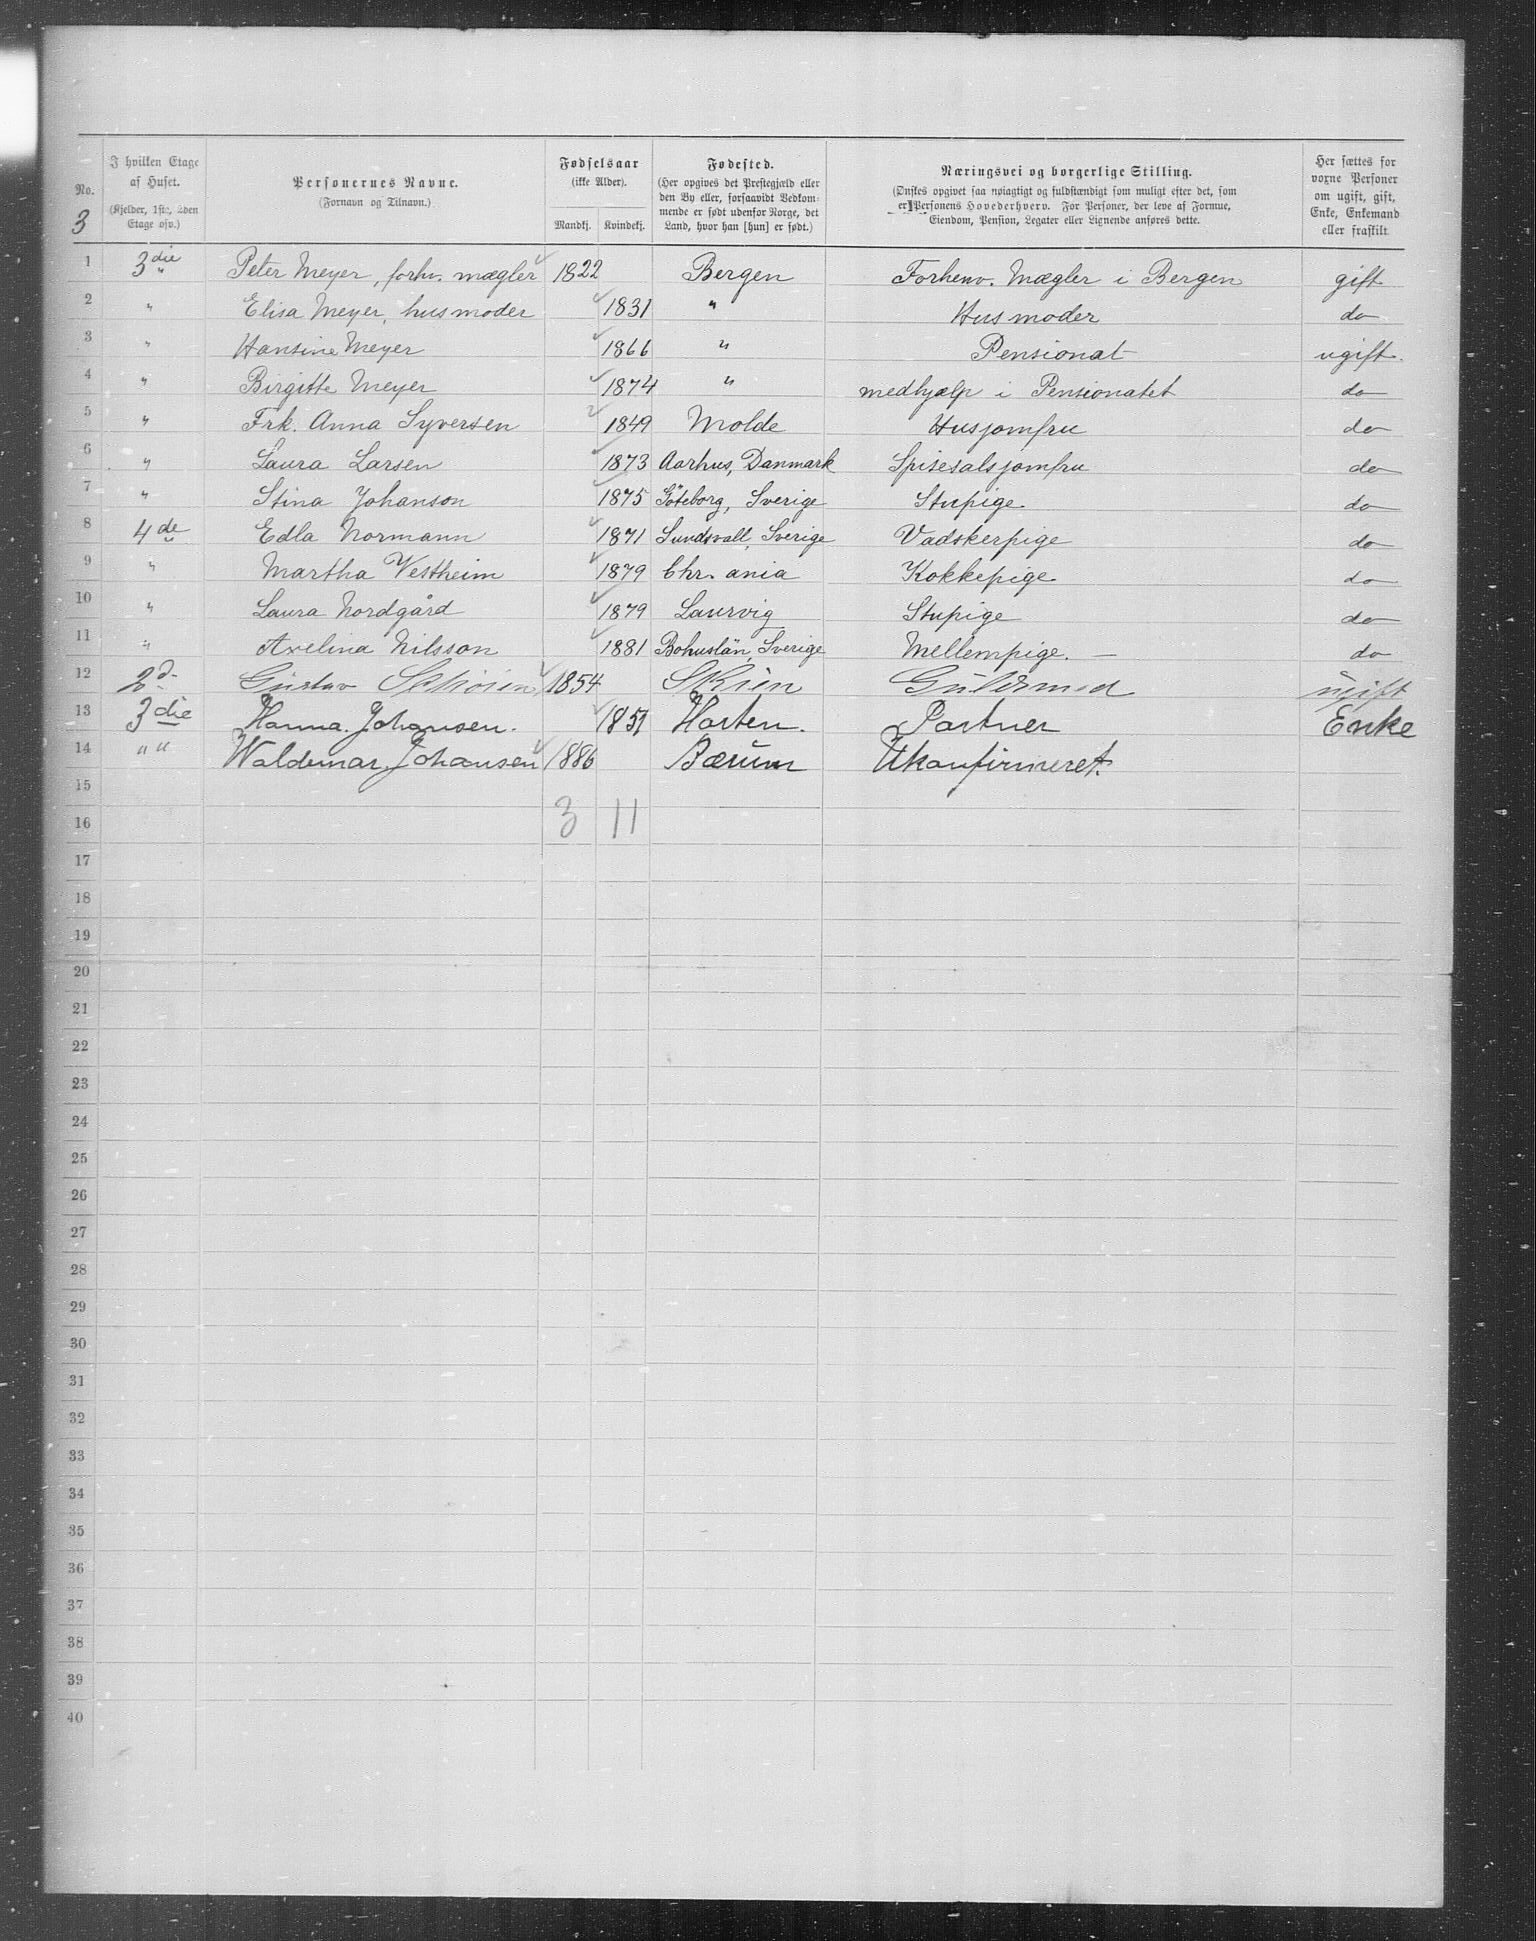 No.
3
I hvilken Etage
af Huset.
(Kjelder, 1ste, 2den
Etage osv.)
Personernes Navne.
(Fornavn og Tilnavn.)
Fødselsaar
(ikke Alder).
Mandkj. Kvindekj.
Fødested.
(Her opgives det Prestegjæld eller
den By eller, forsaavidt Vedkom-
mende er født udenfor Norge, det
Land, hvor han [hun] er født.)
Næringsvei og borgerlige Stilling.
(Ønskes opgivet saa nøiagtigt og fuldstændigt som muligt efter det, som
er Personens Hovederhverv. For Personer, der leve af Formue,
Eiendom, Pension, Legater eller Lignende anføres dette.
Her sættes for
voxne Personer
om ugift, gift,
Enke, Enkemand
eller fraskilt
1 3die Peter Meyer, forhv. mægler 1822 Bergen Forhenv. Mægler i Bergen gift
2 " Elisa Meyer, husmoder 1831 " Husmoder do
3 " Hansine Meyer 1866 " Pensionat ugift.
4 " Birgitte Meyer 1874 " medhjælp i Pensionatet do
5 " Frk. Anna Syversen 1849 Molde Husjomfru do
6 " Laura Larsen 1873 Aarhus, Danmark Spisesalsjomfru do
7 " Stina Johanson 1875 Göteborg, Sverige Stupige do
8 4de Edla Normann 1871 Sundsvall, Sverige Vadskerpige do
9 " Martha Vestheim 1879 Chr. ania Kokkepige do
10 " Laura Nordgård 1879 Laurvig Stupige do
11 " Axelina Nilsson 1881 Bohuslän, Sverige Mellempige. — do
12 2d. Gustav 1854 Skien Guldsmed ugift
13 3die Hanna. Johansen. 1851 Horten. Partner Enke
14 " " Waldemar. Johansen 1886 Bærum Ukonfirmeret.
15
16 3 11
17
18
19
20
21
22
23
24
25
26
27
28
29
30
31
32
33
34
35
36
37
38
39
40